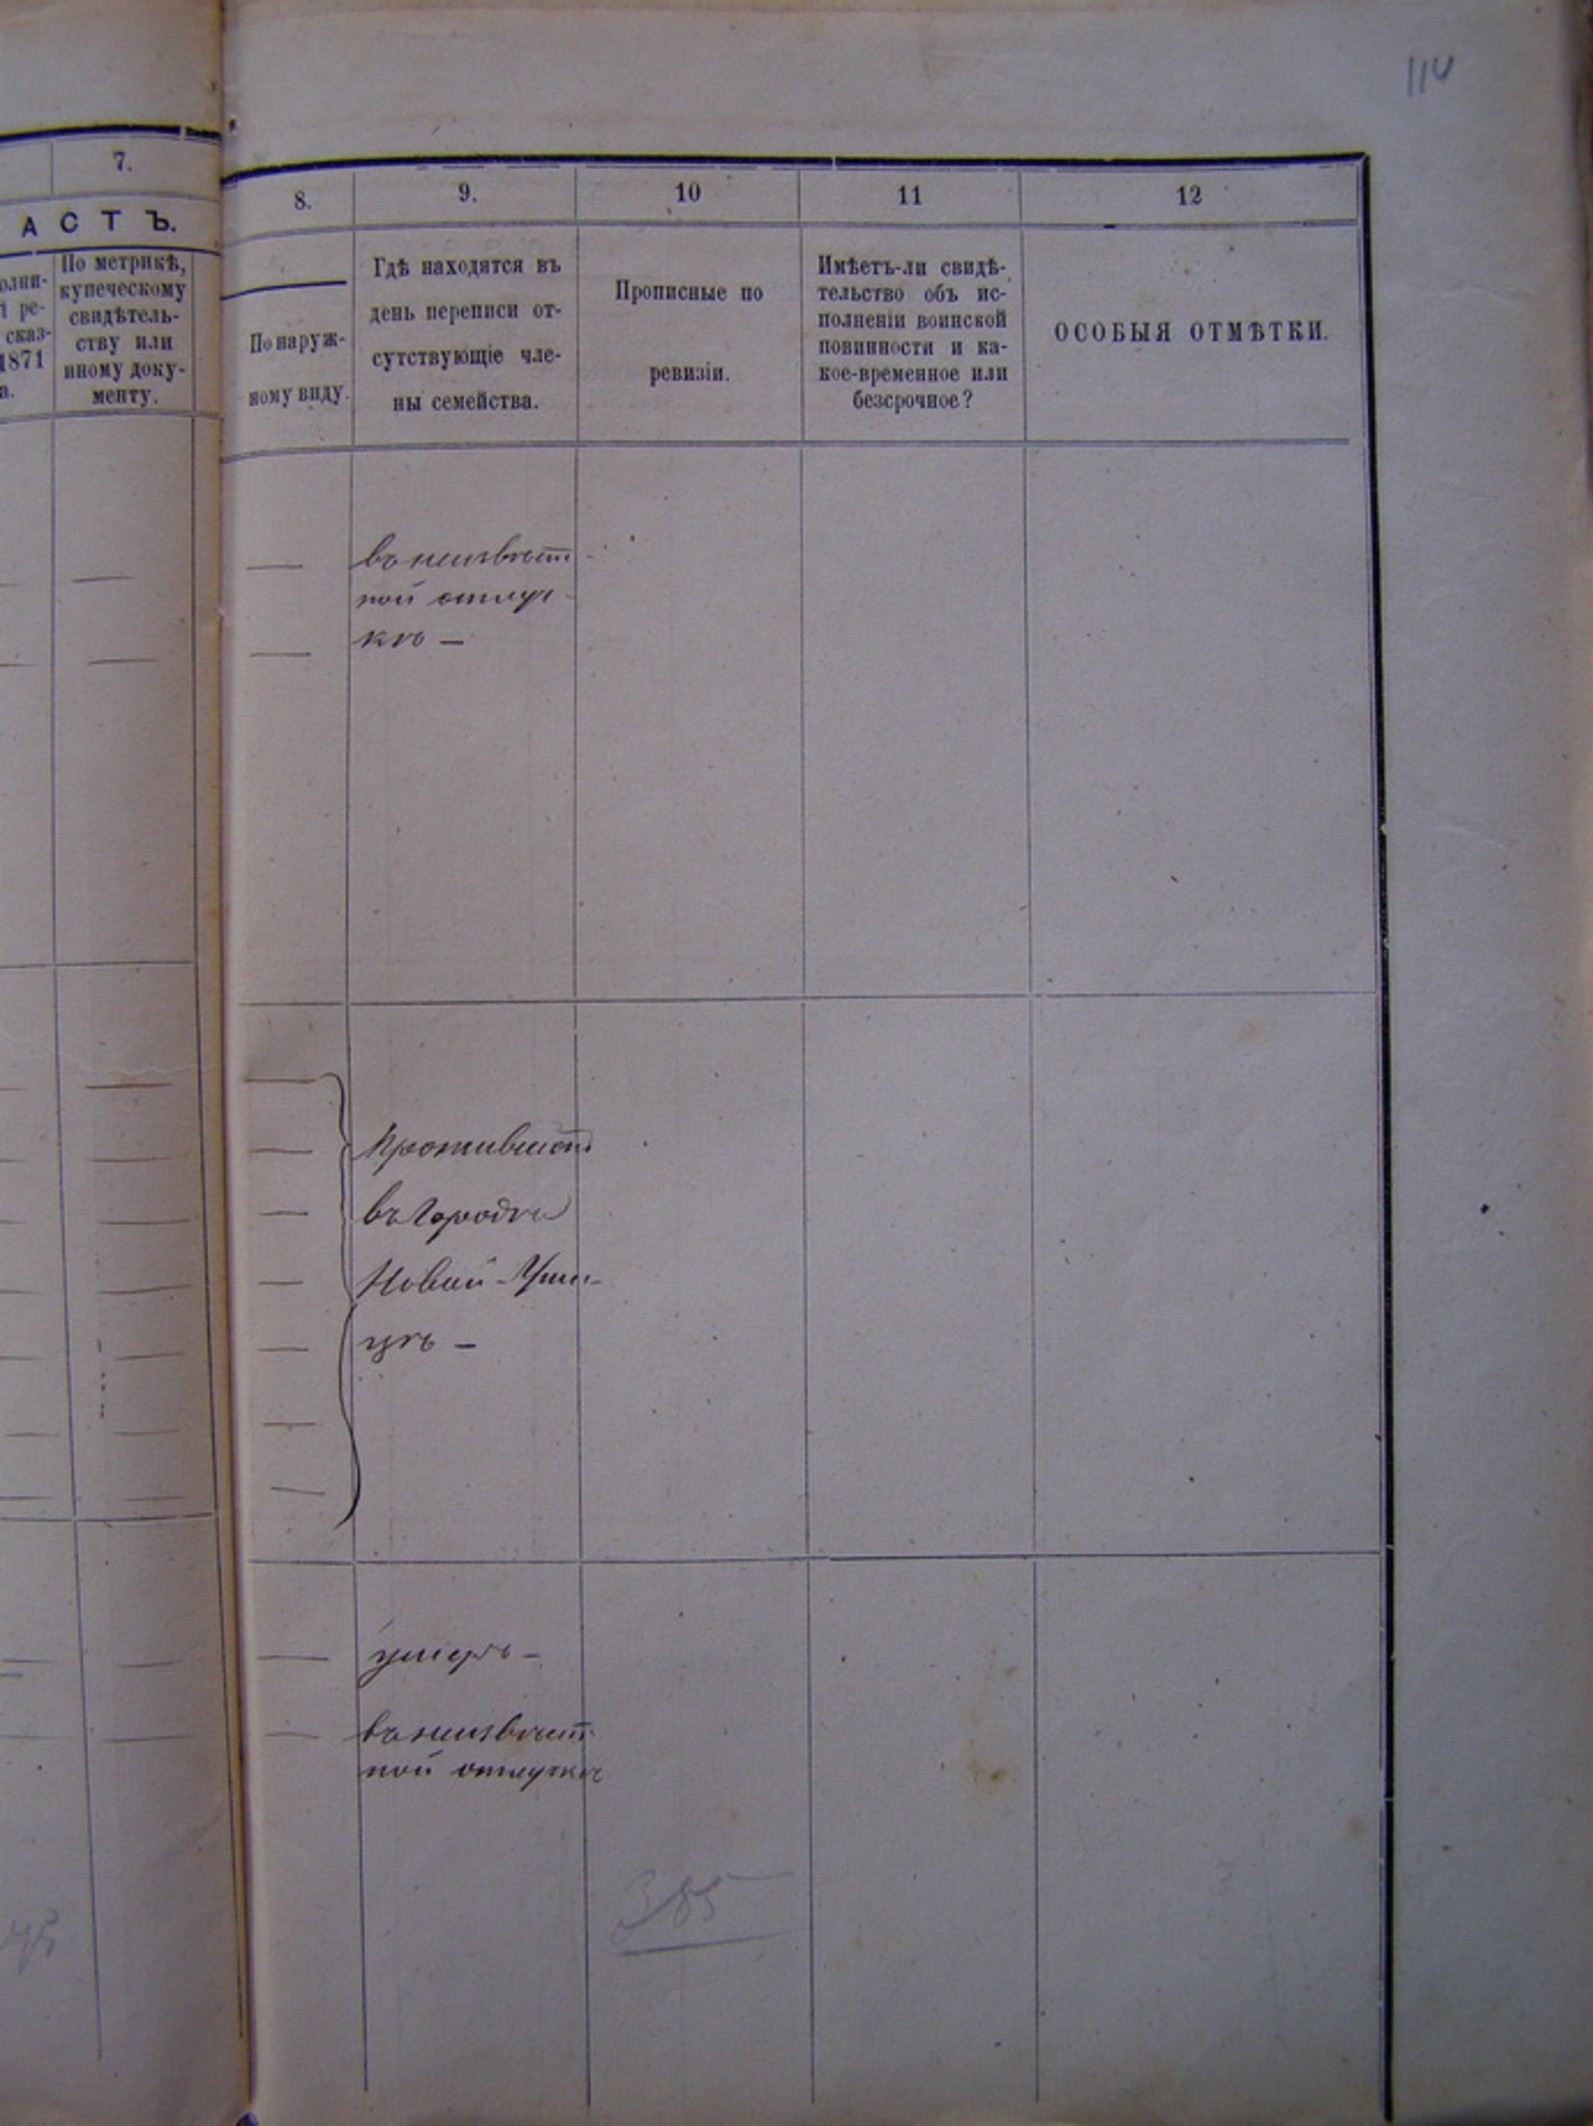 114
7.
8.
9.
10
11
12
АСТЪ.
олни-
ре-
сказ-
1871
а.
По метрикѣ,
купеческому
свидѣтель-
ству или
иному доку-
менту.
По наруж-
ному виду.
Гдѣ находятся въ
день переписи от-
сутствующіе чле-
ны семейства.
Прописные по
ревизіи.
Имѣетъ-ли свидѣ-
тельство объ ис-
полненіи воинской
повинности и ка-
кое-временное или
безсрочное?
ОСОБЫЯ ОТМѢТКИ.
въ неизвѣст-
ной отлуч-
кѣ —
въ
Новой-Уши-
цѣ —
умеръ —
въ неизвѣст-
ной отлучкѣ
385